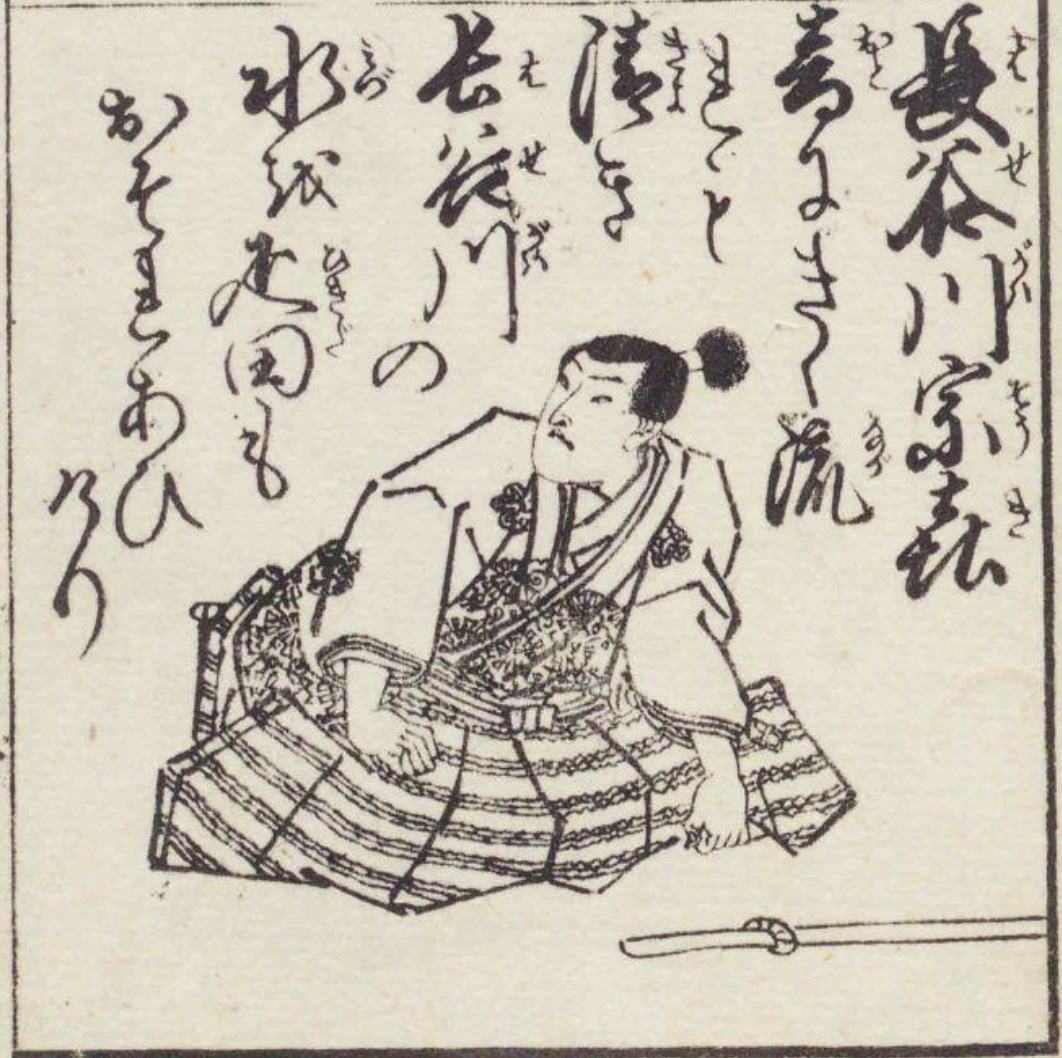 長谷川宗喜
音にきく流
れも
清き
長谷川の
水越疋田も
おそれあひ
けり